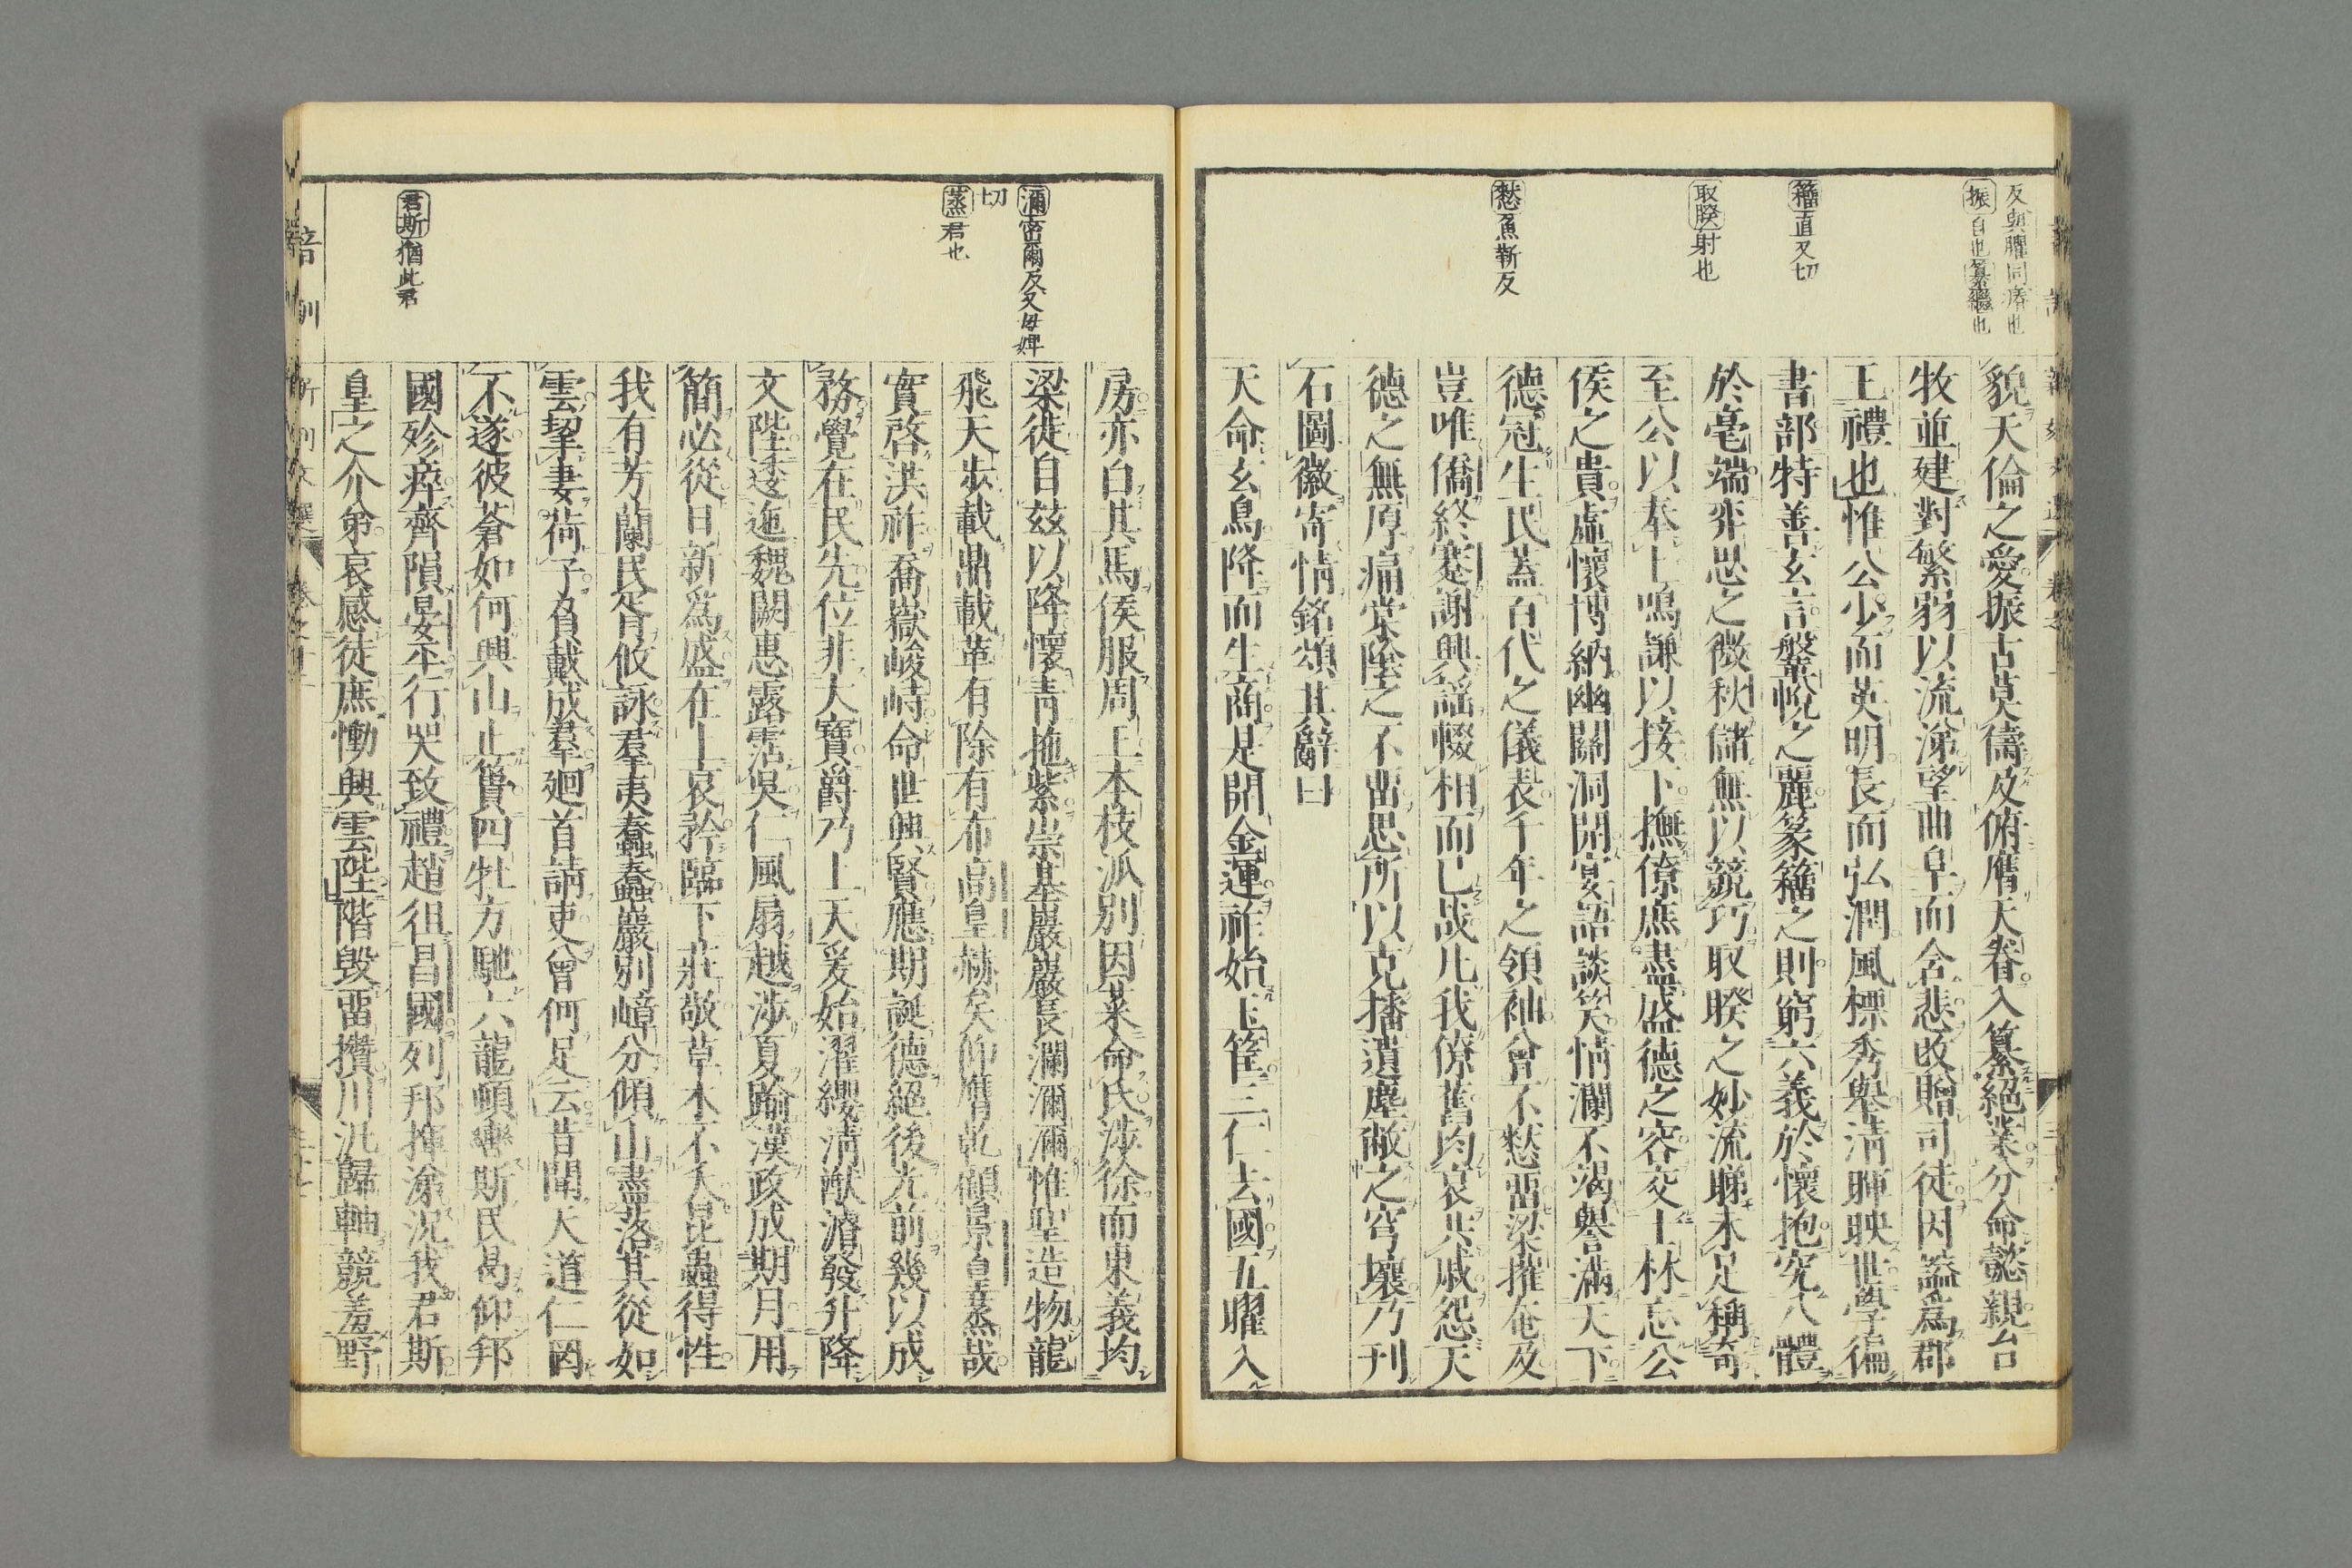 反與臞同瘠也
振自也纂繼也
籀直又切
取睽射也
憖魚靳反
貌天倫之愛振古莫儔及俯膺天眷入纂絕業分命懿親台
牧並建對繁弱以流涕望曲阜而含悲改贈司徒因謚為郡
王禮也惟公少而英明長而弘潤風標秀舉清暉映世學徧
書部特善玄言鞶帨之麗篆籀之則窮六義於懷抱究八體
於毫端弈思之微秋儲無以競巧取睽之妙流睇未足稱奇
至公以奉上鳴謙以接下撫僚庶盡盛德之容交士林忘公
侯之貴虛懷博納幽關洞開宴語談笑情瀾不竭譽滿天下
德冠生民蓋百代之儀表千年之領袖曾不憖留梁摧奄及
豈唯僑終蹇謝興謠輟相而已哉凡我僚舊均哀共戚怨天
德之無厚痛棠陰之不留思所以克播遺塵敝之穹壤乃刊
石圖徽寄情銘頌其辭曰
天命玄鳥降而生商是開金運祚始玉筐三仁去國五曜入
瀰密爾反又母婢
切
蒸君也
君斯猶此君
房亦白其馬侯服周王本枝派別因菜命氏涉徐而東義均
梁徙自茲以降懷青拖紫崇基巖巖長瀾瀰瀰惟聖造物龍
飛天步載鼎載革有除有布高皇赫矣仰膺乾顧景皇蒸哉
實啓洪祚喬嶽峻峙命世興賢應期誕德絕後光前幾以成
務覺在民先位非大寶爵乃上天爰始濯纓清猷濬發升降
文陛逶迤魏闕惠露霑吳仁風扇越涉夏踰漢政成期月用
簡必從日新為盛在上哀矜臨下莊敬草木不夭昆蟲得性
我有芳蘭民胥攸詠羣夷蠢蠢巖別嶂分傾山盡落其從如
雲挈妻荷子負戴成羣廻首請吏曾何足云昔聞天道仁罔
不遂彼蒼如何興山止簣四牡方馳六龍頓轡斯民曷仰邦
國殄瘁齊隕晏平行哭致禮趙徂昌國列邦揮涕況我君斯
皇之介弟哀感徒庶慟興雲陛階毀留攢川汎歸軸競羞野
音訓